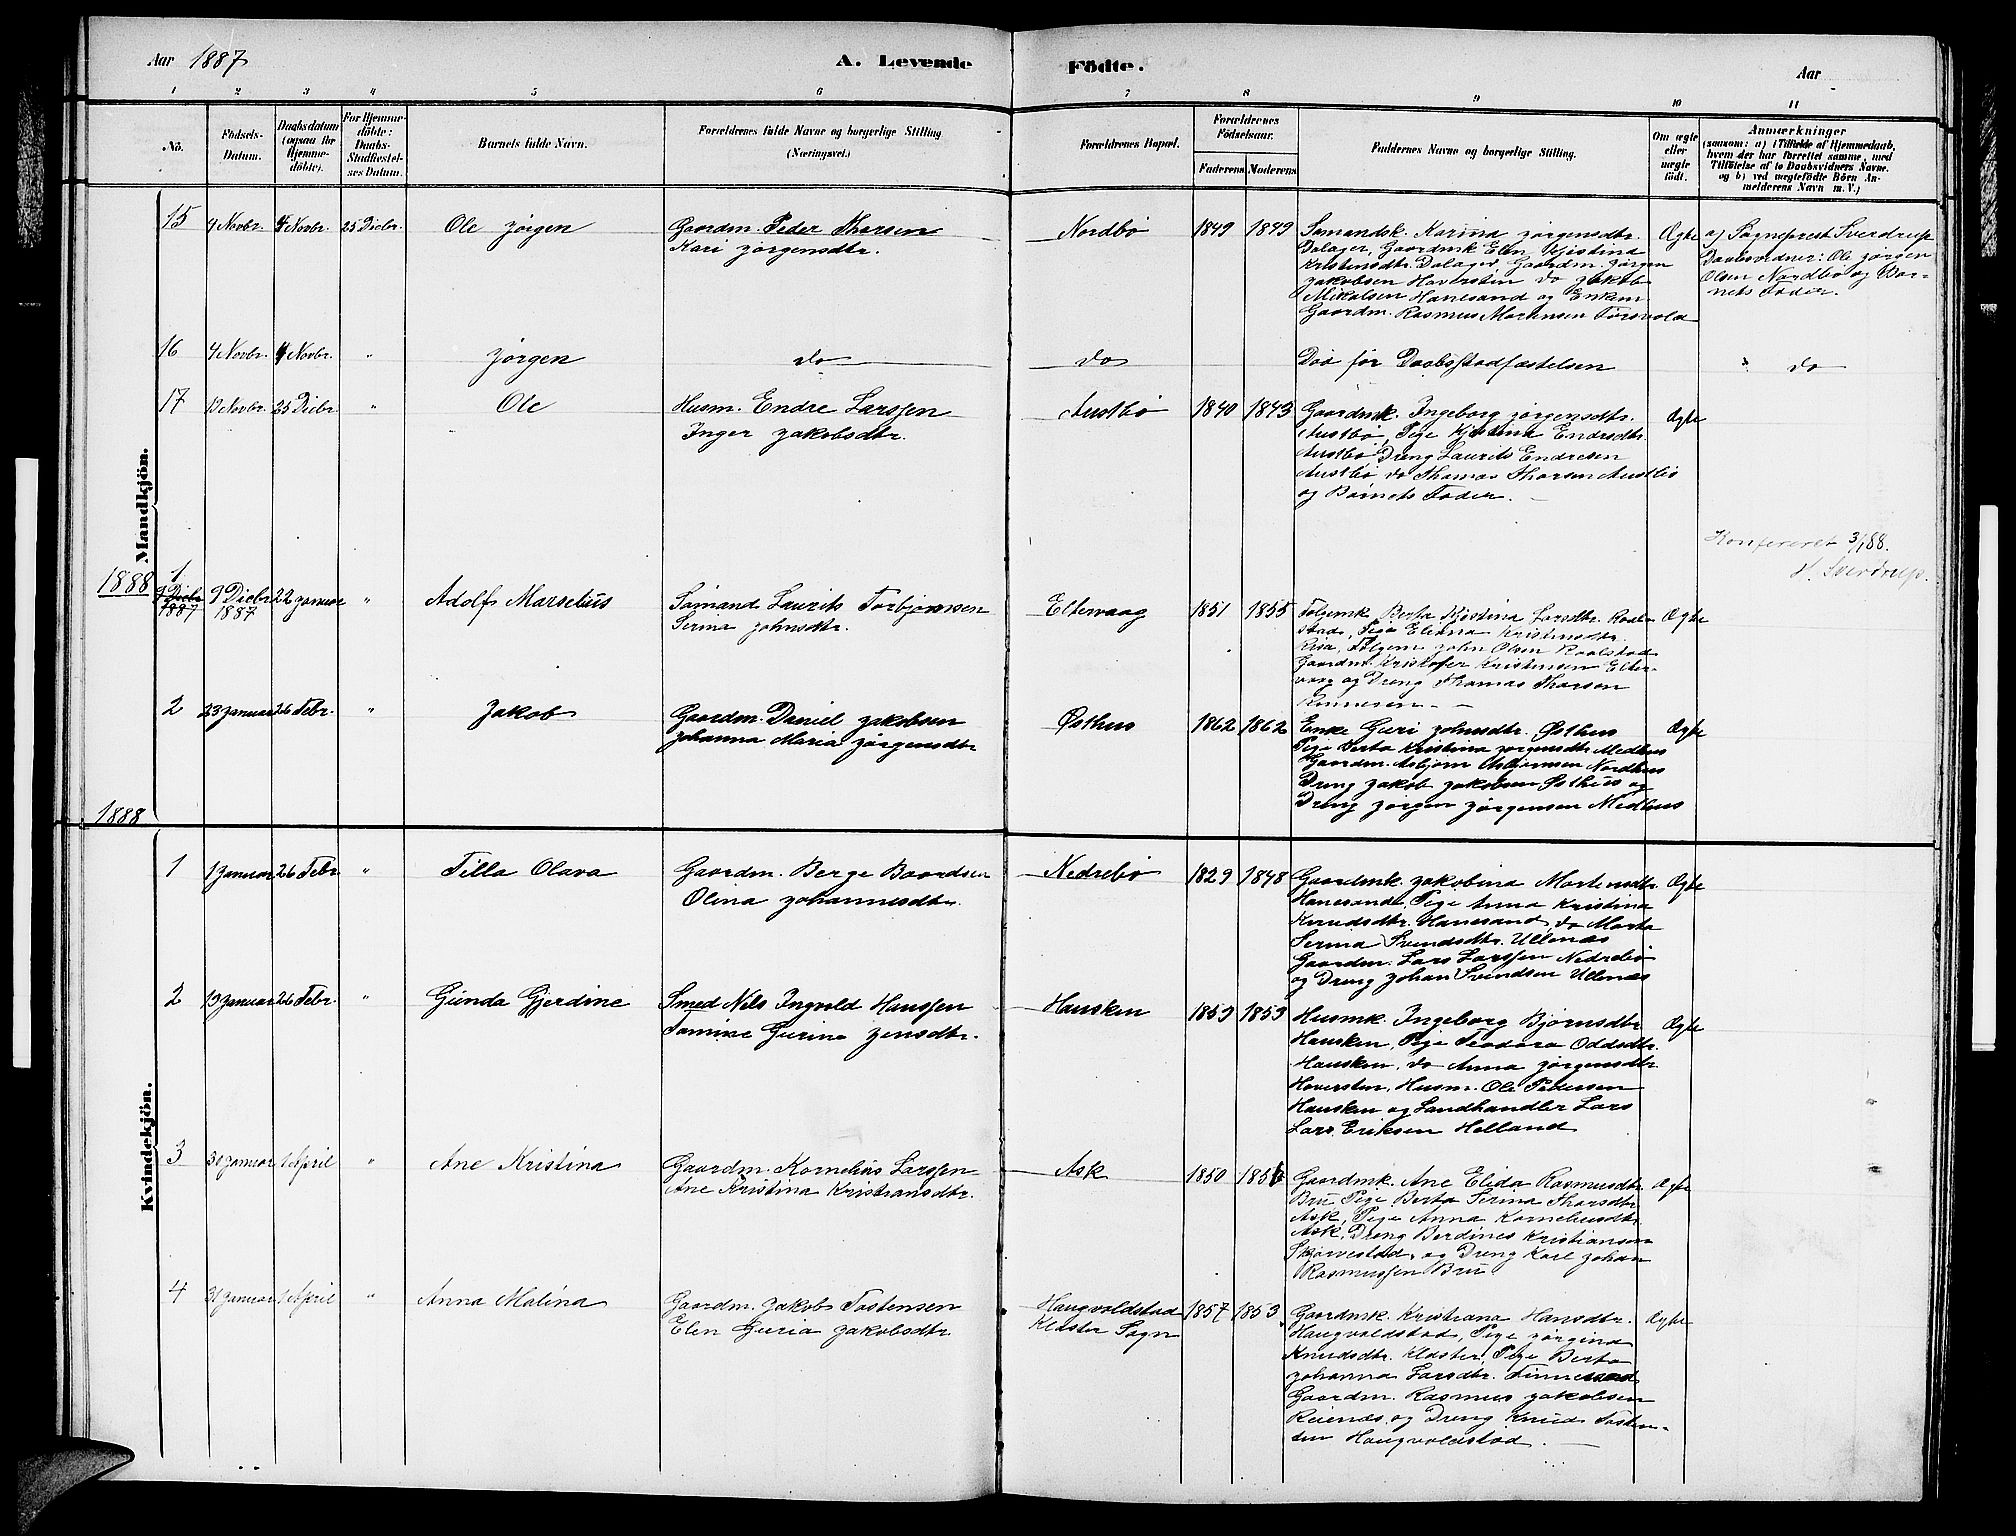 Aar 1887
A. Levende
Fødte.
Aar
1 2 3 4 5 6 7 8 9 10 11
No.
Fødsels-
Datum.
Daabsdatum
(ogsaa for
Hjemme-
døbte).
For Hjemme-
døbte:
Daabs-
Stadfæstel-
ses Datum.
Barnets fulde Navn.
Forældrenes fulde Navne og borgerlige Stilling
(Næringsvei.)
Forældrenes Bopæl.
Forældrenes
Fødselsaar.
Faderens Moderens
Faddernes Navne og borgerlige Stilling.
Om ægte
eller
uægte
født.
Anmærkninger
(saasom: a) i Tilfælde af Hjemmedaab,
hvem der har forrettet samme, med
Tilføielse af to Daabsvidners Navne,
og b) ved uægtefødte Børn An-
melderens Navn m. V.)
Mandkjön.
15 4 Novbr. 4 Novbr. 25 Decbr. Ole Jørgen
Gaardm. Peder Thorsen
Kari Jørgensdtr.
Nordbø 1849 1849
Sømandsk. Karina Jørgensdtr.
Dalager, Gaardmk Elen Kjistina
Kristensdtr. Dalager, Gaardm. Jørgen
Jakobsen Haversten do Jakob
Mikalsen Hanesand og Enkem.
Gaardm. Rasmus Mortensen
Ægte
a) Sogneprest Sverdrup
Daabsvidner: Ole Jørgen
Olsen Nordbø og Bar-
nets Fader.
16 4 Novbr. 4 Novbr. " Jørgen do do
Død før Daabsstadfæstelsen
" do
17 13 Novbr. 25 Decbr. " Ole
Husm. Endre Larssen
Inger Jakobsdtr.
Austbø 1840 1843
Gaardmk. Ingeborg Jørgensdtr.
Austbø, Pige Kjistina Endresdtr.
Austbø Dreng Laurits Endresen
Austbø do Thomas Thorsen Austbø
og Barnets Fader.
Ægte
Konfereret 3/1 88.
H. Sverdrup.
1888
1 9 Decbr 1887
9 Decbr 1887 22 Januar " Adolf Marselius
Sømand Laurits Torbjørnsen
Serina Johnsdtr.
Eltervaag 1851 1855
Berta Kjistina Larsdtr.
stad, Pige Elisina Kristensdtr.
John Olsen
Gaardm. Kristofer Kristensen Elter-
vaag og Dreng Thomas Thorsen
Ægte
2 23 Januar 26 Febr. " Jakob
Gaardm. Daniel Jakobsen
Johanna Maria Jørgensdtr
Østhus 1862 1862
Enke Guri Johnsdtr. Østhus
Pige Berta Kristina Jørgensdtr. Medhus
Gaardm. Asbjørn Asbjørnsen Nordhus
Dreng Jakob Jakobsen Østhus og
Dreng Jørgen Jørgensen Medhus
Ægte
1888
Kvindekjön.
1 1 Januar 26 Febr " Tilla Olava
Gaardm. Berge Baardsen
Olina Johannesdtr.
Nedrebø 1829 1848
Gaardmk. Jakobina Mortensdtr.
Hanesand, Pige Anna Kristina
Knudsdtr. Hanesand, do Marta
Serina Svendsdtr. Ullenæs
Gaardm. Lars Larssen Nedrebø
og Dreng Johan Svendsen Ullenæs
Ægte
2 19 Januar 26 Febr. " Gunda Gjerdine
Smed Nils Ingvald Hanssen
Tomine Gurine Jensdtr.
Hausken 1853 1853
Husmk. Ingeborg Bjørnsdtr
Hausken, Pige Teodora Oddsdtr.
Hausken, do Anna Jørgensdtr.
Haversten, Husm. Ole Pedersen
Hausken og Landhandler Lars
Lars Eriksen Helland
Ægte
3 30 Januar 1 April " Ane Kristina
Gaardm. Kornelius Larssen
Ane Kristina Kristiansdtr.
Ask 1850 1856
Gaardmk. Ane Elida Rasmusdtr.
Bru Pige Berta Serina Thorsdtr
Ask, Pige Anna Korneliusdtr.
Ask, Dreng Berdines Kristiansen
Skørvestad, og Dreng Karl Johan
Rasmussen Bru
Ægte
4 31 Januar 1 April " Anna Malina
Gaardm. Jakob Tostensen
Elen Guria Jakobsdtr.
Haugvoldstad
Kloster Sogn
1857 1853
Gaardmk. Kristiana Hansdtr.
Haugvoldstad, Pige Jørgina
Knudsdtr. Kloster, Pige Berta
Johanna Larsdtr. Finnesand
Gaardm. Rasmus Jakobsen
Reienæs, og Dreng Knud Tosten-
sen Haugvoldstad.
Ægte